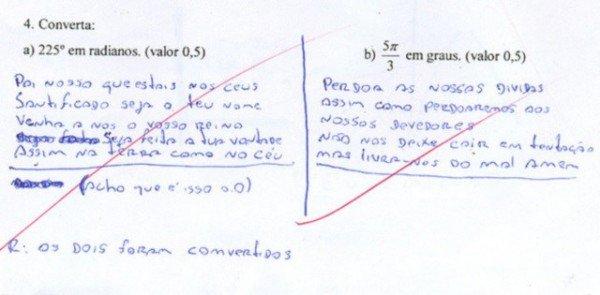 4. Converta:
a) 225º em radianos. (valor 0,5)
Pai nosso que estais nos ceus
Santificado seja o teu nome
Venha a nos o vosso Reino
Seja feita a tua vontade
Assim na terra como no céu
(Acho que é isso o.O)
b) 5π/3 em graus. (valor 0,5)
Perdoa as nossas dividas
Assim como perdoaremos aos
nossos devedores
Não nos deixe cair em tentação
mas livra-nos do mal Amem
R: os dois foram comvertidos